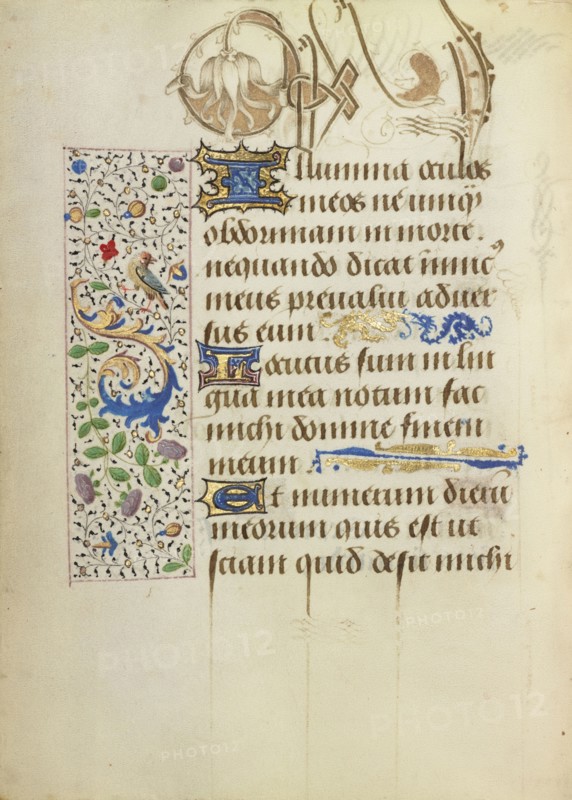 Illumina oculos
meos ne umq̄
obdormiam in morte .
nequando dicat inimic⁹
meus prevalui adver
sus eum
Locutus sum in lin
gua mea notum fac
michi domine finem
meum .
Et numerum dierū
meorum quis est ut
sciam quid desit michi
PHOTO12
PHOTO12
PHOTO12
PHOTO12